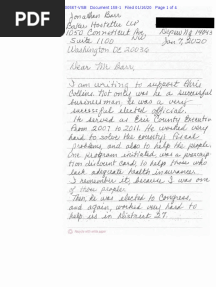 Document 158-1 Filed 01/16/20 Page 1 of 4
Jonathan Barr
Baker Hostetler LLP
1050 Connecticut Ave, NW
Suite 1100
Washington DC 20036
NY 14043
Jan 7, 2020
Dear Mr. Barr,
I am writing to support Chris
Collins. Not only was he a successful
businessman, he was a very
successful elected official.
He served as Erie County Executive
from 2007 to 2011. He worked very
hard to solve the county's fiscal
problems and also to help the people.
One program initiated was a prescrip-
tion discount card, to help those who
lack adequate health insurance.
I remember it, because I was one
of those people.
Then he was elected to Congress,
and again, worked very hard to
help us in District 27.